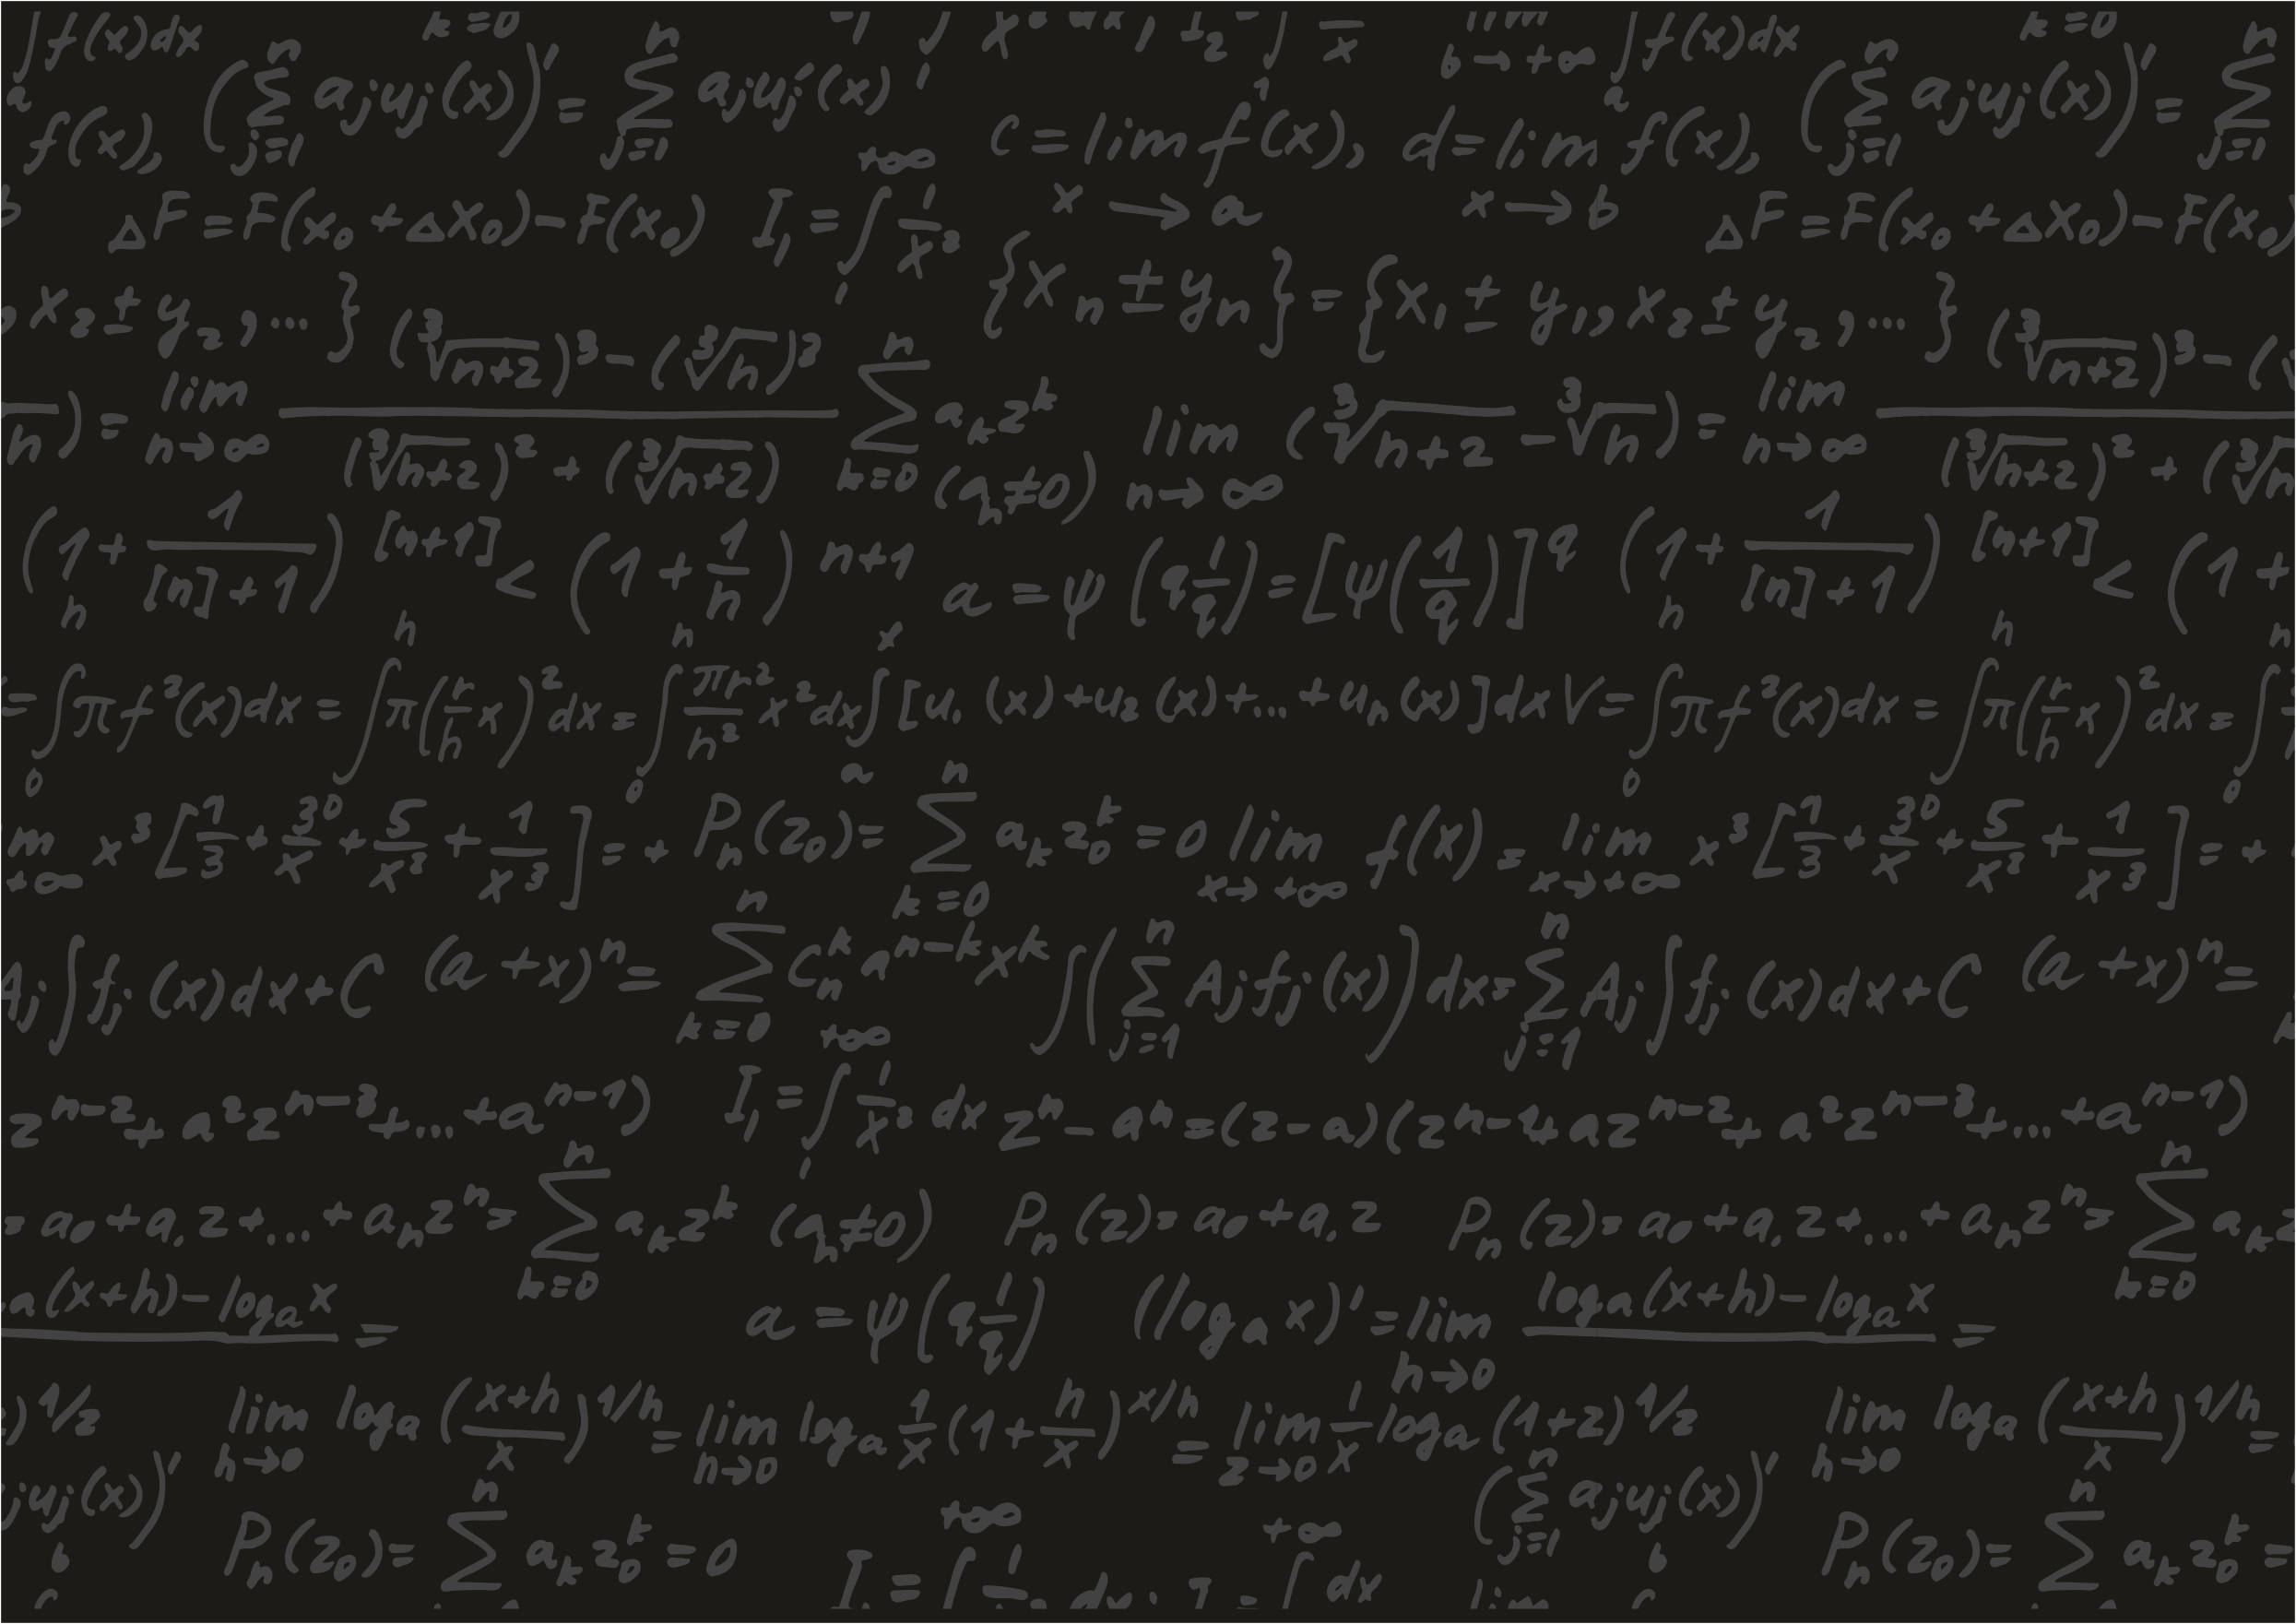 ∫f(x)dx k=0 b→+∞ ∫f(x)dx k=0
f(x), (∑ajyj(x))' = ∑ajyj'(x) c=lim f(x), d=lim f(x), (∑ajyj(x))' = ∑
ΔF=F(x0+ΔX0)-F(x0) I=∫1/x² x→a x→b ΔF=F(x0+ΔX0)-F(x0
x2±y2,...} {xn±yn}={x1±y1,x2±y2,...}
h)=lim n→∞ ((∛n+2)³-(∛n)³)/((∛n+2)²+(∛n+2) ∑ akz^k (an≠0) lim n→∞ (∛n+2-∛n)=lim n→∞ (∛n+2)³-( (∛n+2)²+(∛n
(1+1/[n]+1)^[n+1] < (1+1/n)^n+1 a=ψ(q1/q)=[ψ(1/q)]^q (1+1/[n]+1)^[n+1] < (1+
=∫πf²(x)dx=∫π(r/h x)²dx=∫πr²/h² x²dx ∫[u1(x)+u2(x)+...+un(x)]dx V=∫πf²(x)dx=∫π(r/h x)²dx=∫
x³[1/3+30/x+5/x²+1/x³]=+ Pn(z0)=∑ akz0^k=0 lim x→+∞ f(x)=lim x→+∞ x³[1/3+30/x+5/x²+1/x³]=+
Aj∫fj(x)dx+C (a+x)^n=∑ Cn^k a^n-k x^k ∫(∑Ajfj(x))dx=∑Aj∫fj(x)dx+C (a+x)^n=
z^n-2+az²z^n-3+...+a^n-1) I=∫1/x²dx z^n-a^n=(z-a)(z^n-1+az^n-2+a²z^n-3+...+a^n-1)
=a0+a1z+...+anz^n=∑ akz^k (an≠0) Pn(z)=a0+a1z Pn(z)=a0+a1z+...+anz^n=∑ ak
a(x+h)-loga x = a=ψ(q1/q) (loga x)'=lim h→0 loga(x+h)-loga x =
)^1/z lim h→0 loga (x+h/x)^1/h=lim h→0 loga 1/x(1+h/x)^x/h=lim z→0 1/x loga(1+z)^1/z lim h→0 loga (x+h/x)^1/h=
jyj(x))' Pn(z0)=∑ akz0^k=0 +∞ +∞ (∑ajyj(x))' Pn(z0)=∑ akz0^k=
b I=∫1 ∫dx b